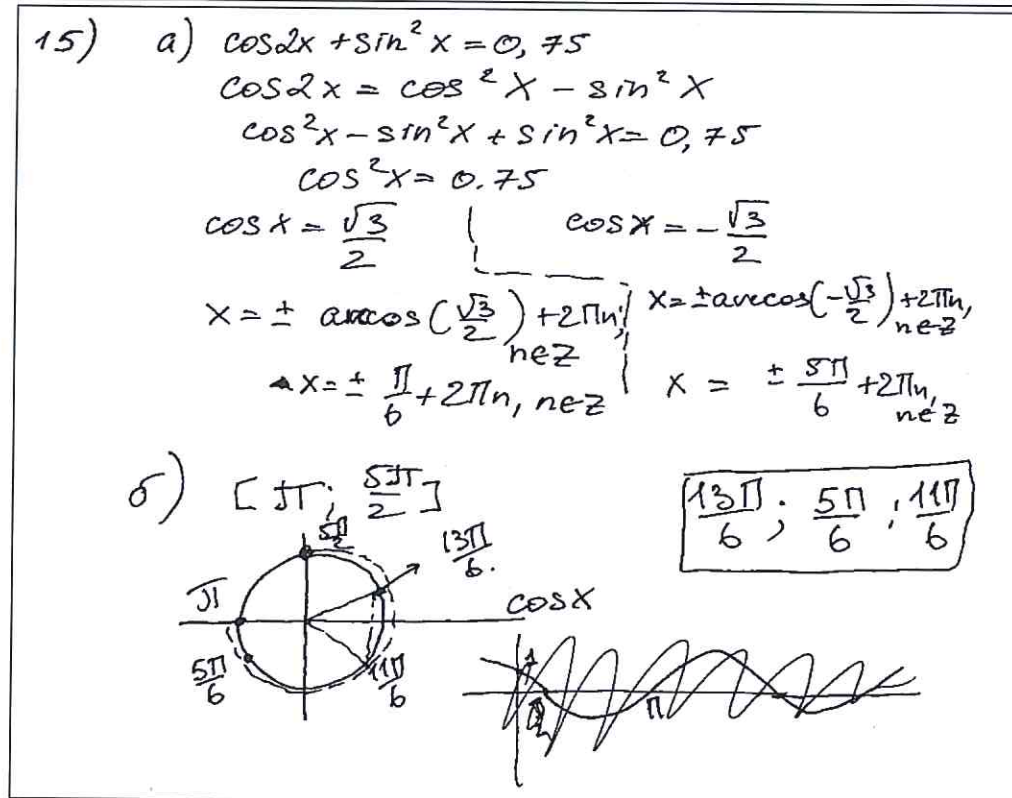 15) а) cos2x + sin²x = 0,75
cos2x = cos²x − sin²x
cos²x − sin²x + sin²x = 0,75
cos²x = 0.75
cosx = √3/2 cosx = −√3/2
x = ± arccos(√3/2) + 2Πn; n∈Z x = ± arccos(−√3/2) + 2Πn, n∈Z
x = ± Π/6 + 2Πn, n∈Z x = ± 5Π/6 + 2Πn, n∈Z
б) [π; 5π/2] 13Π/6; 5Π/6; 11Π/6
5π/2
13Π/6.
π
cosx
5Π/6
11Π/6
1
Π